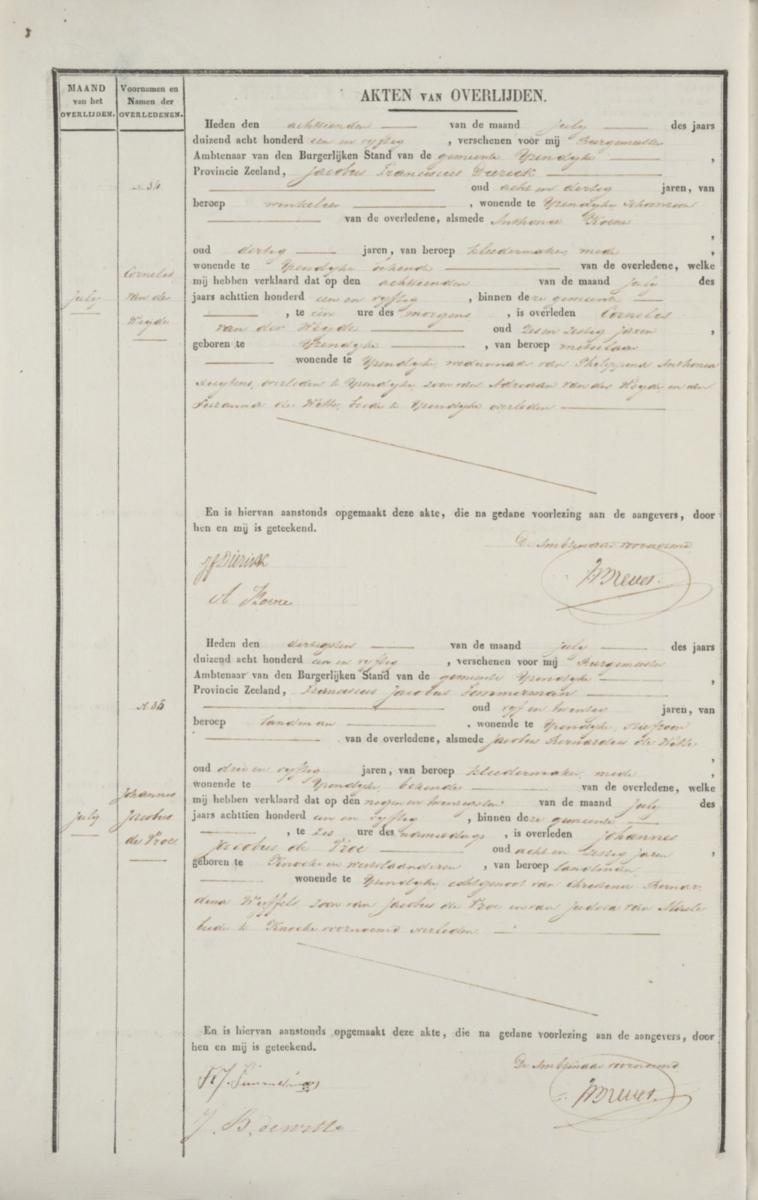 MAAND
van het
OVERLIJDEN.
Voornamen en
Namen der
OVERLEDENEN.
AKTEN VAN OVERLIJDEN.
N. 34.
july
Cornelis
van der
Weyde
Heden den achttienden van de maand july des jaars
duizend acht honderd een en vyftig , verschenen voor mij Burgemeester
Ambtenaar van den Burgerlijken Stand van de gemeente Yzendyke ,
Provincie Zeeland, Jacobus Franciscus Dierick
oud acht en dertig jaren, van
beroep winkelier , wonende te Yzendyke schoonzoon
van de overledene, alsmede Anthonie Koene ,
oud dertig jaren, van beroep kleedermaker, mede ,
wonende te Yzendyke bekende van de overledene, welke
mij hebben verklaard dat op den achttienden van de maand july des
jaars achttien honderd een en vyftig , binnen deze gemeente
, te een ure des morgens , is overleden Cornelis
van der Weyde oud zes en zestig jaren ,
geboren te Yzendyke , van beroep metselaar
wonende te Yzendyke, weduwnaar van Philippina Anthonia
overleden te Yzendyke, zoon van Adriaan van der Weyde en van
Suzanna de Witte, beide te Yzendyke overleden
En is hiervan aanstonds opgemaakt deze akte, die na gedane voorlezing aan de aangevers, door
hen en mij is geteekend.
De Ambtenaar voornoemd
JF Dierick
A Koene
N. 35
july
Johannes
Jacobus
de Vroe
Heden den dertigsten van de maand july des jaars
duizend acht honderd een en vyftig , verschenen voor mij Burgemeester
Ambtenaar van den Burgerlijken Stand van de gemeente Yzendyke
Provincie Zeeland, Franciscus Jacobus Temmerman
oud vyf en twentig jaren, van
beroep landman , wonende te Yzendyke, stiefzoon
van de overledene, alsmede Jacobus Bernardus de Witte ,
oud drie en vyftig jaren, van beroep kleedermaker, mede ,
wonende te Yzendyke, bekende van de overledene, welke
mij hebben verklaard dat op den negen en twintigsten van de maand july des
jaars achttien honderd een en vyftig , binnen deze gemeente
, te zes ure des namiddags , is overleden Johannes
Jacobus de Vroe oud acht en zestig jaren ,
geboren te Knocke in westvlaanderen , van beroep landman
wonende te Yzendyke, echtgenoot van Bernar
dina Wyffels zoon van Jacobus de Vroe en van Judoca van
beide te Knocke voornoemd overleden
En is hiervan aanstonds opgemaakt deze akte, die na gedane voorlezing aan de aangevers, door
hen en mij is geteekend.
De Ambtenaar voornoemd
J. B. dewitte